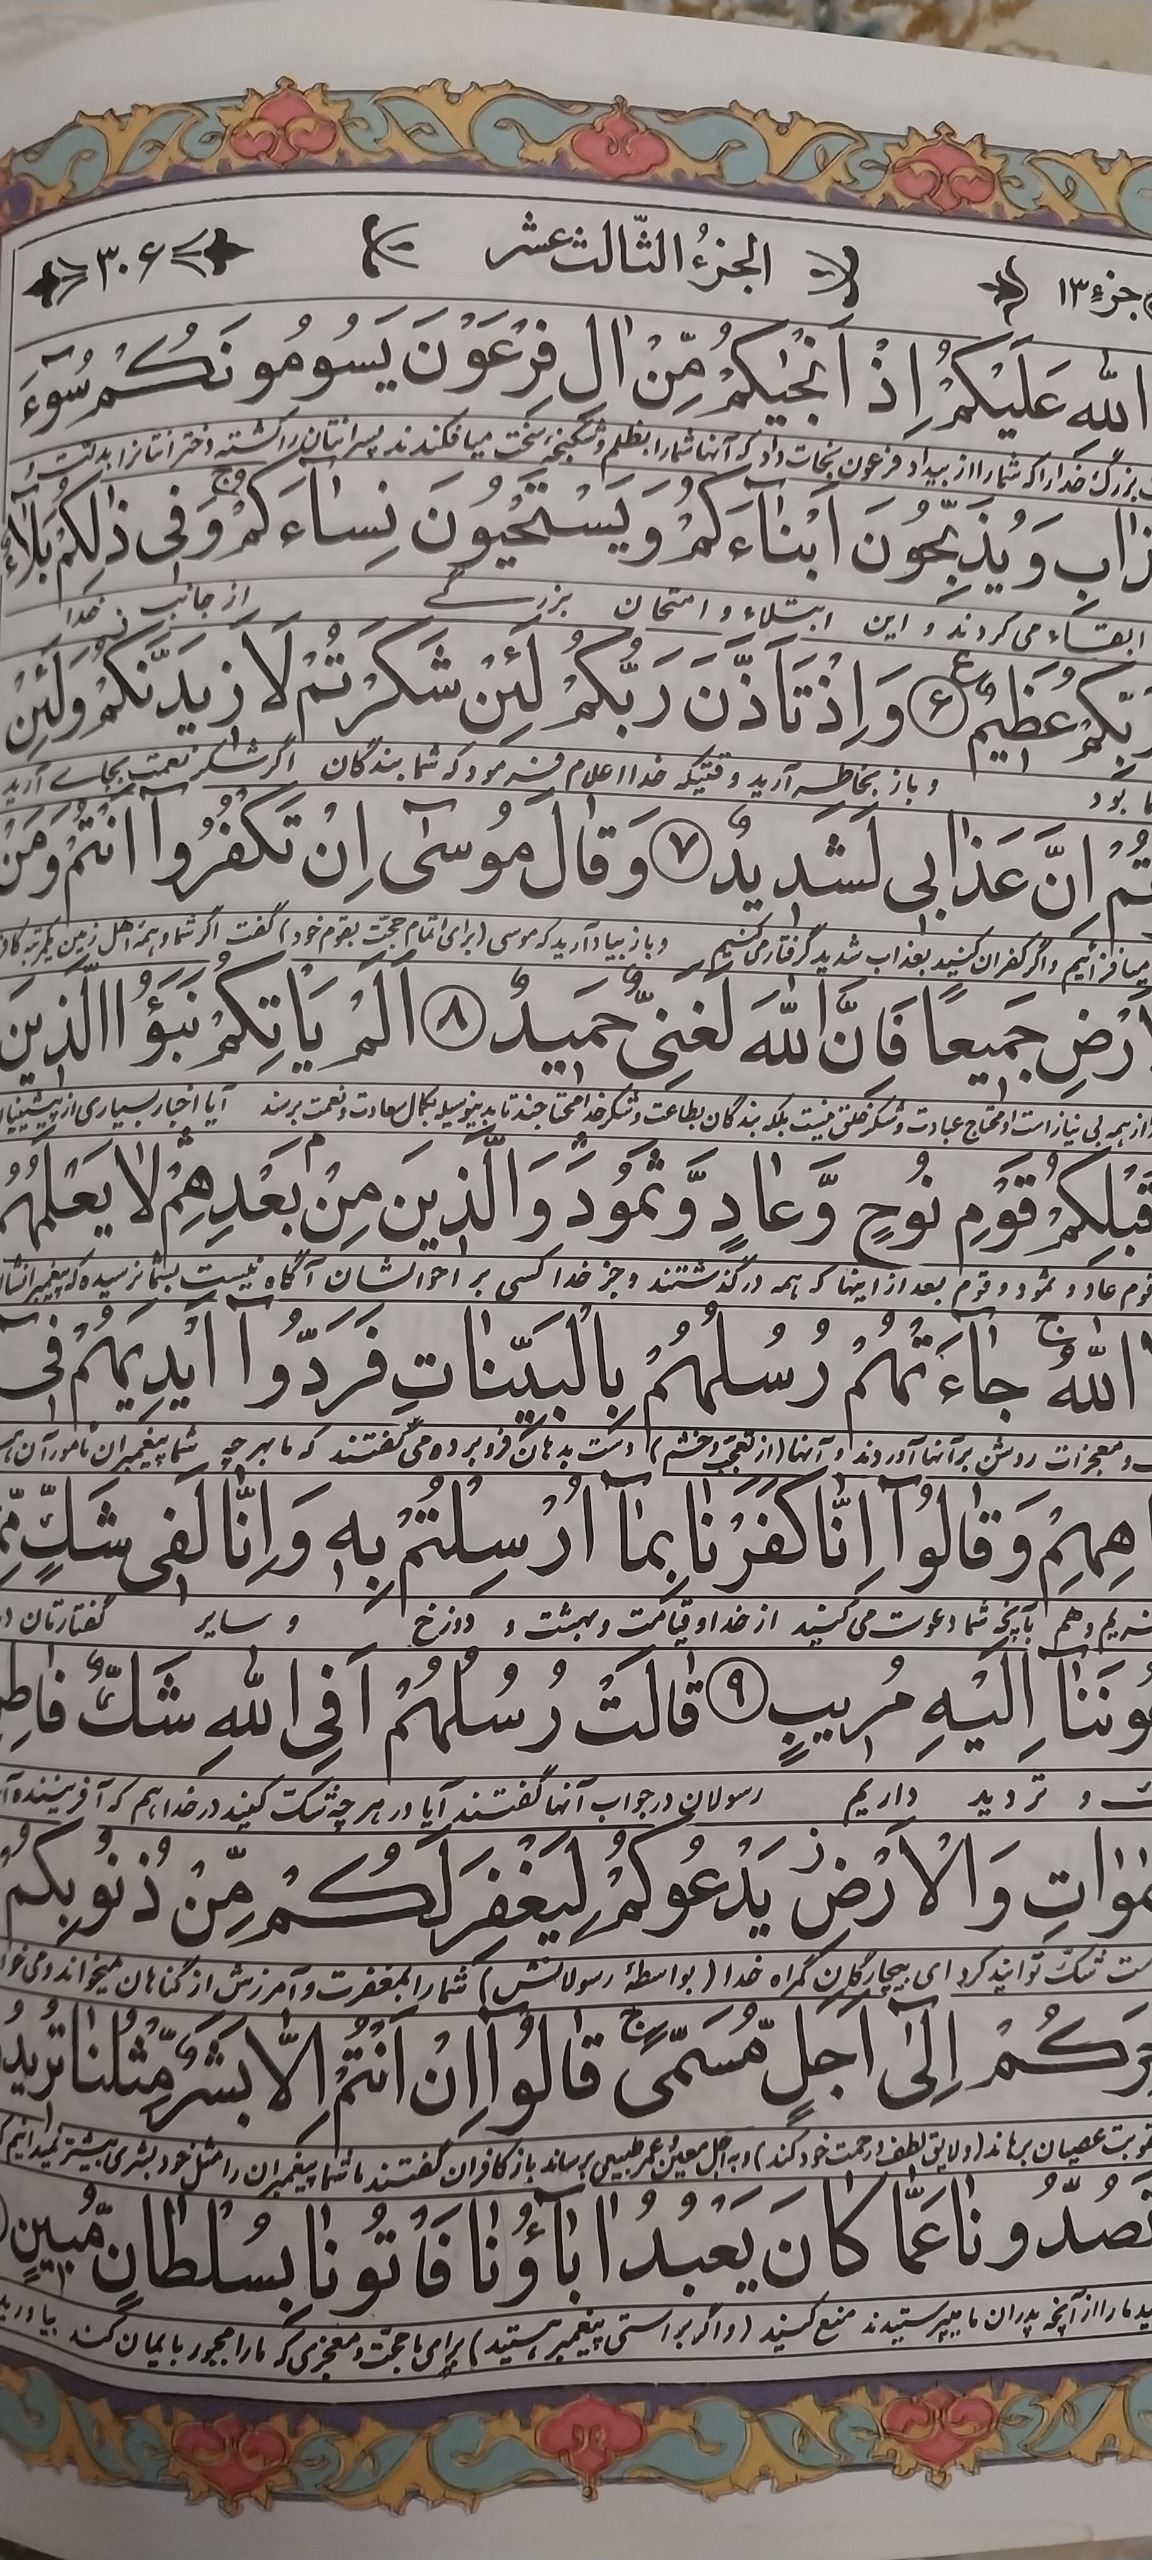 جزء ۱۳ الجزءُ الثّالث عشر ۳۰۶
اللهِ عَلَيْكُمْ اِذْ اَنْجٰيكُمْ مِّنْ اٰلِ فِرْعَوْنَ يَسُومُونَكُمْ سُوٓءَ
بزرگ خدا را که شما را از بیداد فرعون نجات داد که آنها شما را بظلم و شکنجه سخت میافکندند پسرانتان را کشته دخترانتانرا بذلت
وَيُذَبِّحُونَ اَبْنٰاۤءَكُمْ وَيَسْتَحْيُونَ نِسٰاۤءَكُمْ وَفِى ذٰلِكُمْ بَلٰاۤءٌ
ابقاء می کردند و این ابتلاء و امتحان بزرگے از جانب خدا
رَبِّكُمْ عَظِيمٌ ۶ وَاِذْ تَاَذَّنَ رَبُّكُمْ لَئِنْ شَكَرْتُمْ لَاَزِيدَنَّكُمْ وَلَئِنْ
بود و باز بخاطر آرید وقتیکه خدا اعلام فرمود که شما بندگان اگر شکر نعمت بجاے آرید
اِنَّ عَذٰابِى لَشَدِيدٌ ۷ وَقٰالَ مُوسٰىٓ اِنْ تَكْفُرُوٓا اَنْتُمْ وَمَنْ
میافزائیم و اگر کفران کنید بعذاب شدید گرفتار می کنیم و باز بیاد آرید که موسی (برای اتمام حجت بقوم خود) گفت اگر شما و همه اهل زمین یکمرتبه کافر
جَمِيعًا فَاِنَّ اللهَ لَغَنِىٌّ حَمِيدٌ ۸ اَلَمْ يَاْتِكُمْ نَبَؤُا الَّذِينَ
از همه بی نیاز است و محتاج عبادت و شکر خلق نیست بلکه بندگان بطاعت و شکر خدا محتاجند تا بدینوسیله بکمال سعادت و نعمت برسند آیا اخبار بسیاری از پیشینیان
قَبْلِكُمْ قَوْمِ نُوحٍ وَّعٰادٍ وَّثَمُودَ وَالَّذِينَ مِنْ بَعْدِهِمْ لٰا يَعْلَمُهُمْ
قوم عاد و ثمود و قوم بعد از اینها که همه درگذشتند و جز خدا کسی بر احوالشان آگاه نیست بشما نرسیده که پیغمبرانشان
اللهُ جٰاۤءَتْهُمْ رُسُلُهُمْ بِالْبَيِّنٰاتِ فَرَدُّوٓا اَيْدِيَهُمْ فِىٓ
و معجزات روشن بر آنها آوردند و آنها (از تعجب و خشم) دست بدهان فرو برده می گفتند که ما بهر چه شما پیغمبران مامور آن
وَقٰالُوٓا اِنّٰا كَفَرْنٰا بِمٰآ اُرْسِلْتُمْ بِهِ وَاِنّٰا لَفِى شَكٍّ
و هم بآنچه شما دعوت می کنید از خدا و قیامت و بهشت و دوزخ و سایر گفتارتان
اِلَيْهِ مُرِيبٍ ۹ قٰالَتْ رُسُلُهُمْ اَفِى اللهِ شَكٌّ
و تردید داریم رسولان در جواب آنها گفتند آیا در هر چه شک کنید در خدا هم که آفریننده
وَالْاَرْضِ يَدْعُوكُمْ لِيَغْفِرَ لَكُمْ مِّنْ ذُنُوبِكُمْ
شک توانید کرد ای بیچارگان گمراه خدا (بواسطهٔ رسولانش) شما را بمغفرت و آمرزش از گناهان میخواند و می خواهد
اِلىٰٓ اَجَلٍ مُّسَمًّى قٰالُوٓا اِنْ اَنْتُمْ اِلّٰا بَشَرٌ مِّثْلُنٰا
عصیان برهاند (و لایق لطف و رحمت خود کند) و به اجل معین و عمر طبیعی برساند باز کافران گفتند شما پیغمبران را مثل خود بشری بیشتر نمیدانیم
تَصُدُّونٰا عَمّٰا كٰانَ يَعْبُدُ اٰبٰاۤؤُنٰا فَاْتُونٰا بِسُلْطٰانٍ مُّبِينٍ
ما را از آنچه پدران ما میپرستیدند منع کنید (و اگر براستی پیغمبر هستید) برای ما حجّت و معجزی که ما را مجبور بایمان کند بیاورید